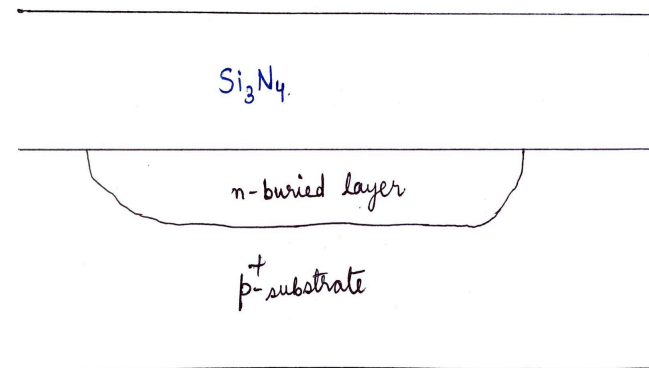 Si₃N₄.
n-buried layer
p⁺-substrate